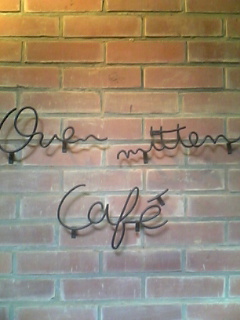 Oven mitten
Café